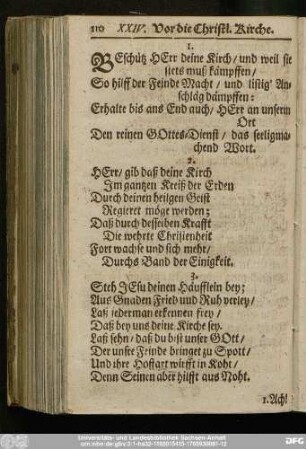 210 XXIV. Vor die Christl. Kirche.
1.
BEschütz HErr deine Kirch / und weil sie
stets muß kämpffen /
So hilff der Feinde Macht / und listig' An-
schläg dämpffen:
Erhalte bis ans End auch / HErr an unserm
Ort
Den reinen GOttes-Dienst / das seeligma-
chend Wort.
2.
HErr / gib daß deine Kirch
Im gantzen Kreiß der Erden
Durch deinen heilgen Geist
Regieret mög werden;
Daß durch desselben Krafft
Die wehrte Christenheit
Fort wachse und sich mehr /
Durchs Band der Einigkeit.
3.
Steh JEsu deinen Häufflein bey;
Aus Gnaden Fried und Ruh verley /
Laß jederman erkennen frey /
Daß bey uns deine Kirche sey.
Laß sehn / daß du bist unser GOtt /
Der unsre Feinde bringet zu Spott /
Und ihre Hoffart wirfft in Koht /
Denn Seinen aber hilfft aus Noht.
1. Ach!
Universitäts- und Landesbibliothek Sachsen-Anhalt